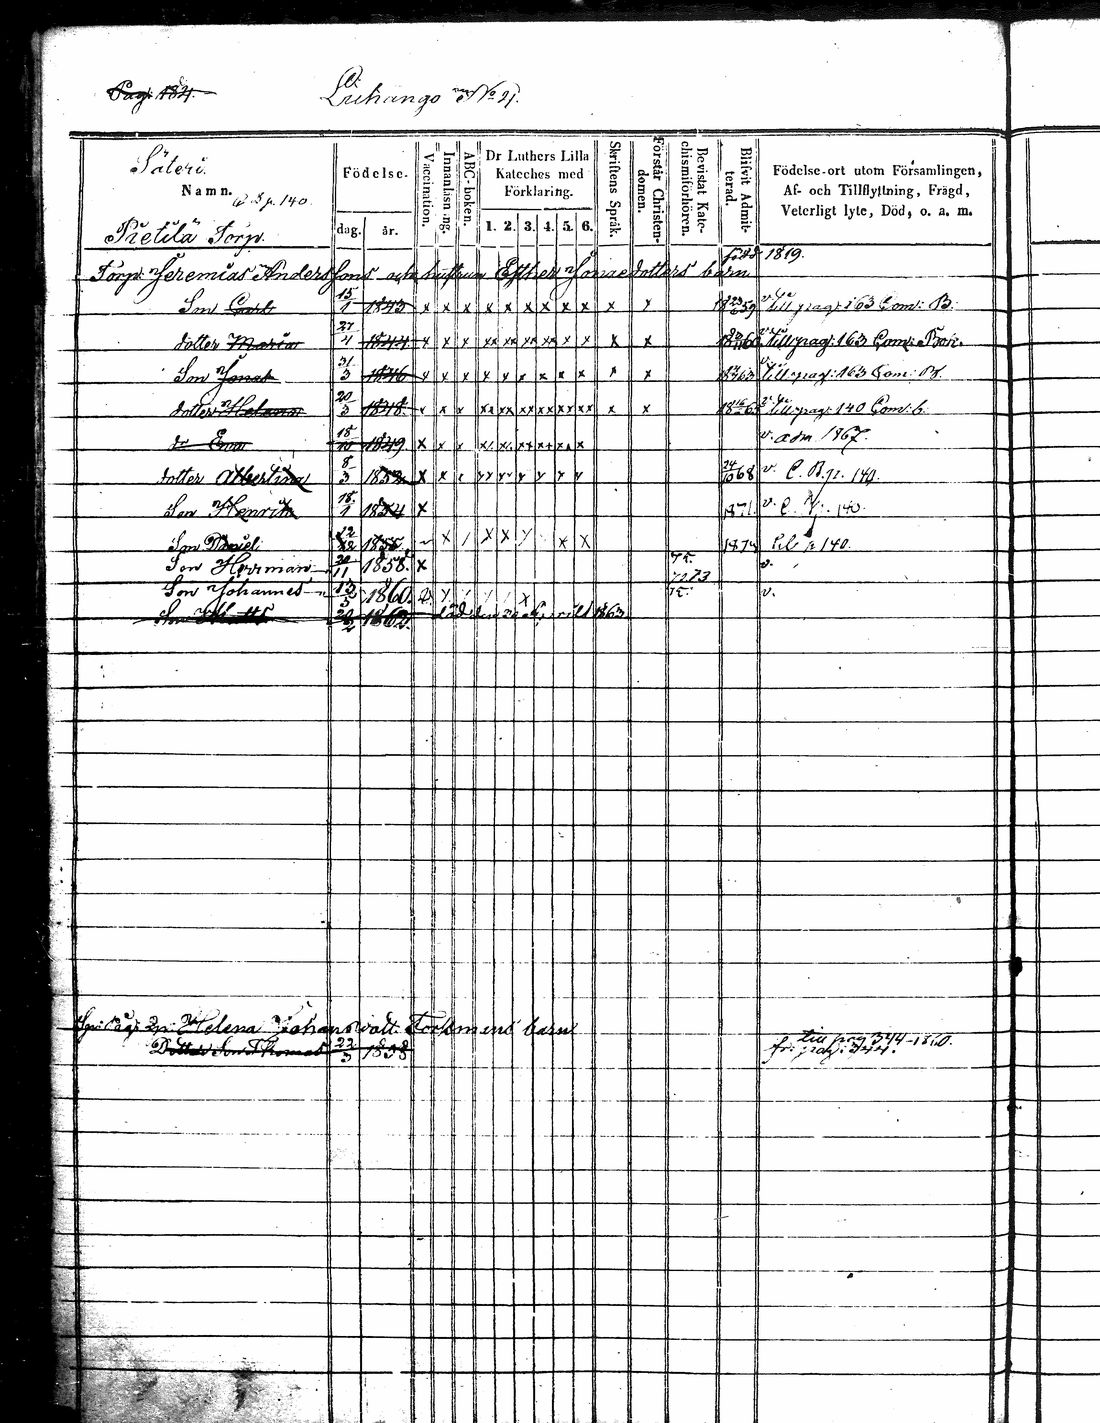 Pag. 184.
Luhango No 21.
Säteri.
Namn. C. B. p. 140.
Pietilä Torp.
Födelse.
dag. år.
Vaccination.
Innanläsning.
ABC-boken.
Dr Luthers Lilla Kateches med Förklaring.
1. 2. 3. 4. 5. 6.
Skriftens Språk.
Förstår Christendomen.
Bevistat Katechismiförhören.
Blifvit Admitterad.
Födelse-ort utom Församlingen,
Af- och Tillflyttning, Frägd,
Veterligt lyte, Död, o. a. m.
Torp. Jeremias Anderssons och hustrun Esther Jonaedotters barn född 1819.
Son Carl 15/1 1843 x x x x x x x x x x x 1859 v. till pag: 163 Com: B.
dotter Maria 27/4 1844 x x x xx xx xx xx x x x x till pag: 163 Com: Bok.
Son Jonas 31/3 1846 x x x x x x x x x x x 1863 v. till pag: 163 Com: B.
dotter Helena 20/3 1848 x x x xx xx xx xx xx xx x x v. till pag: 140 Com: b.
dr Eva 18/10 1849 x x x x x xx xx xx x v. adm 1867.
dotter Albertina 8/3 1852 x x x x x x x x 24/10 68 v. C. B. p. 140.
Son Henrik 18/1 1854 x 1871. v. C. B. p. 140.
Son Daniel 1855 x x x x x x 1874 C. B. p. 140.
Son Herrman 20/11 1858. x 72 73 v.
Son Johannes 13/5 1860. x v.
Son Matts 1862 död den 20 April 1863
Helena Johansdott. Torkmens barn
Dotter Son Thomas 22/3 1858 till pag 344-1860.
fr: pag: 344.